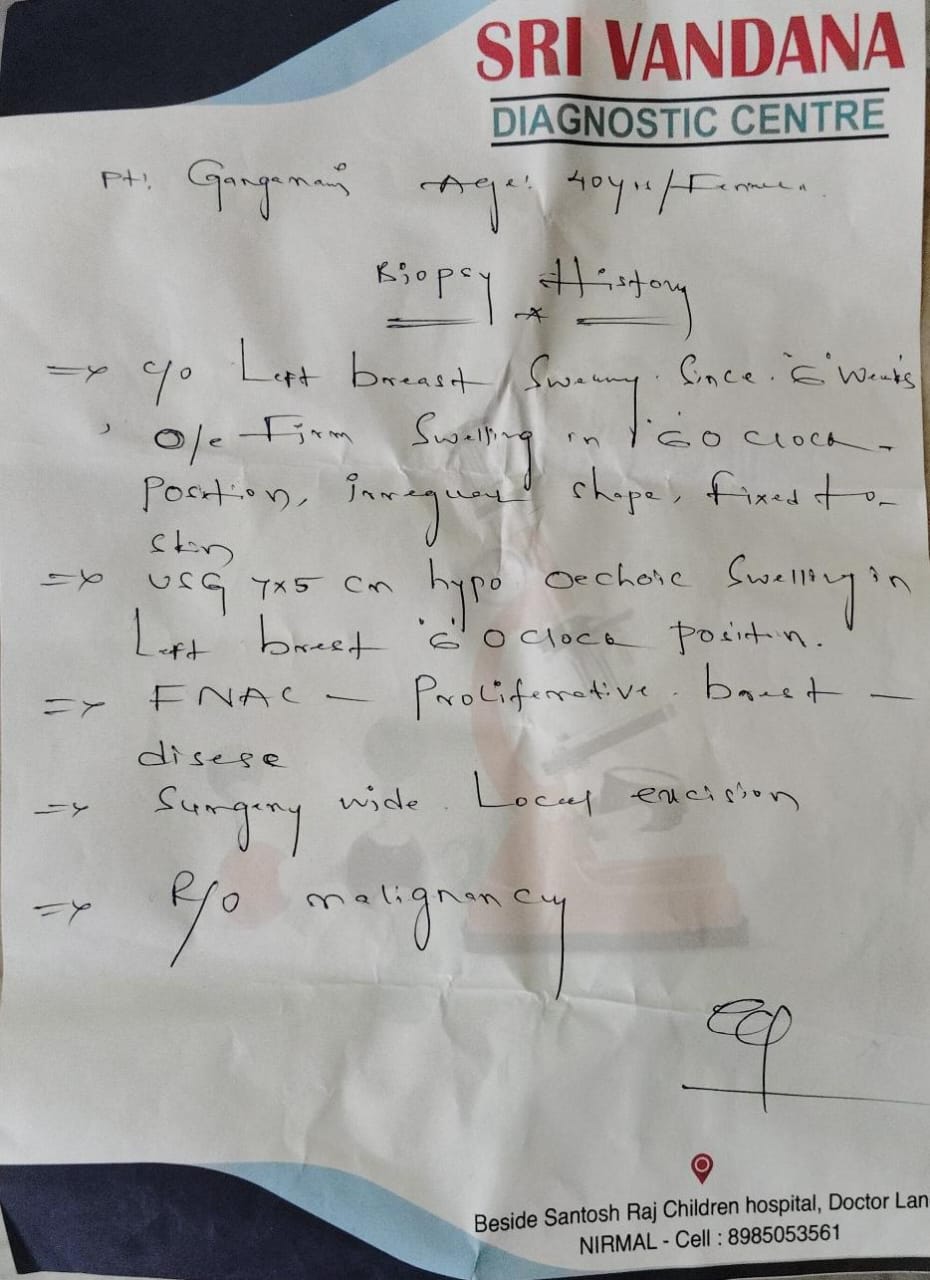 SRI VANDANA
DIAGNOSTIC CENTRE
Pt: Age: 40yrs/Female
Biopsy History
=> c/o Left breast Swelling. Since. '6' Weeks
O/e Firm Swelling in '6 O clock
Position, irregular shape, fixed to
skin
=> USG 7x5 cm hypo oechoic Swelling in
Left brest '6' O clock position.
=> FNAC - Proliferative. brest -
disese
=> Surgery wide. Local excision
=> R/o malignancy
Beside Santosh Raj Children hospital, Doctor Lan
NIRMAL - Cell : 8985053561